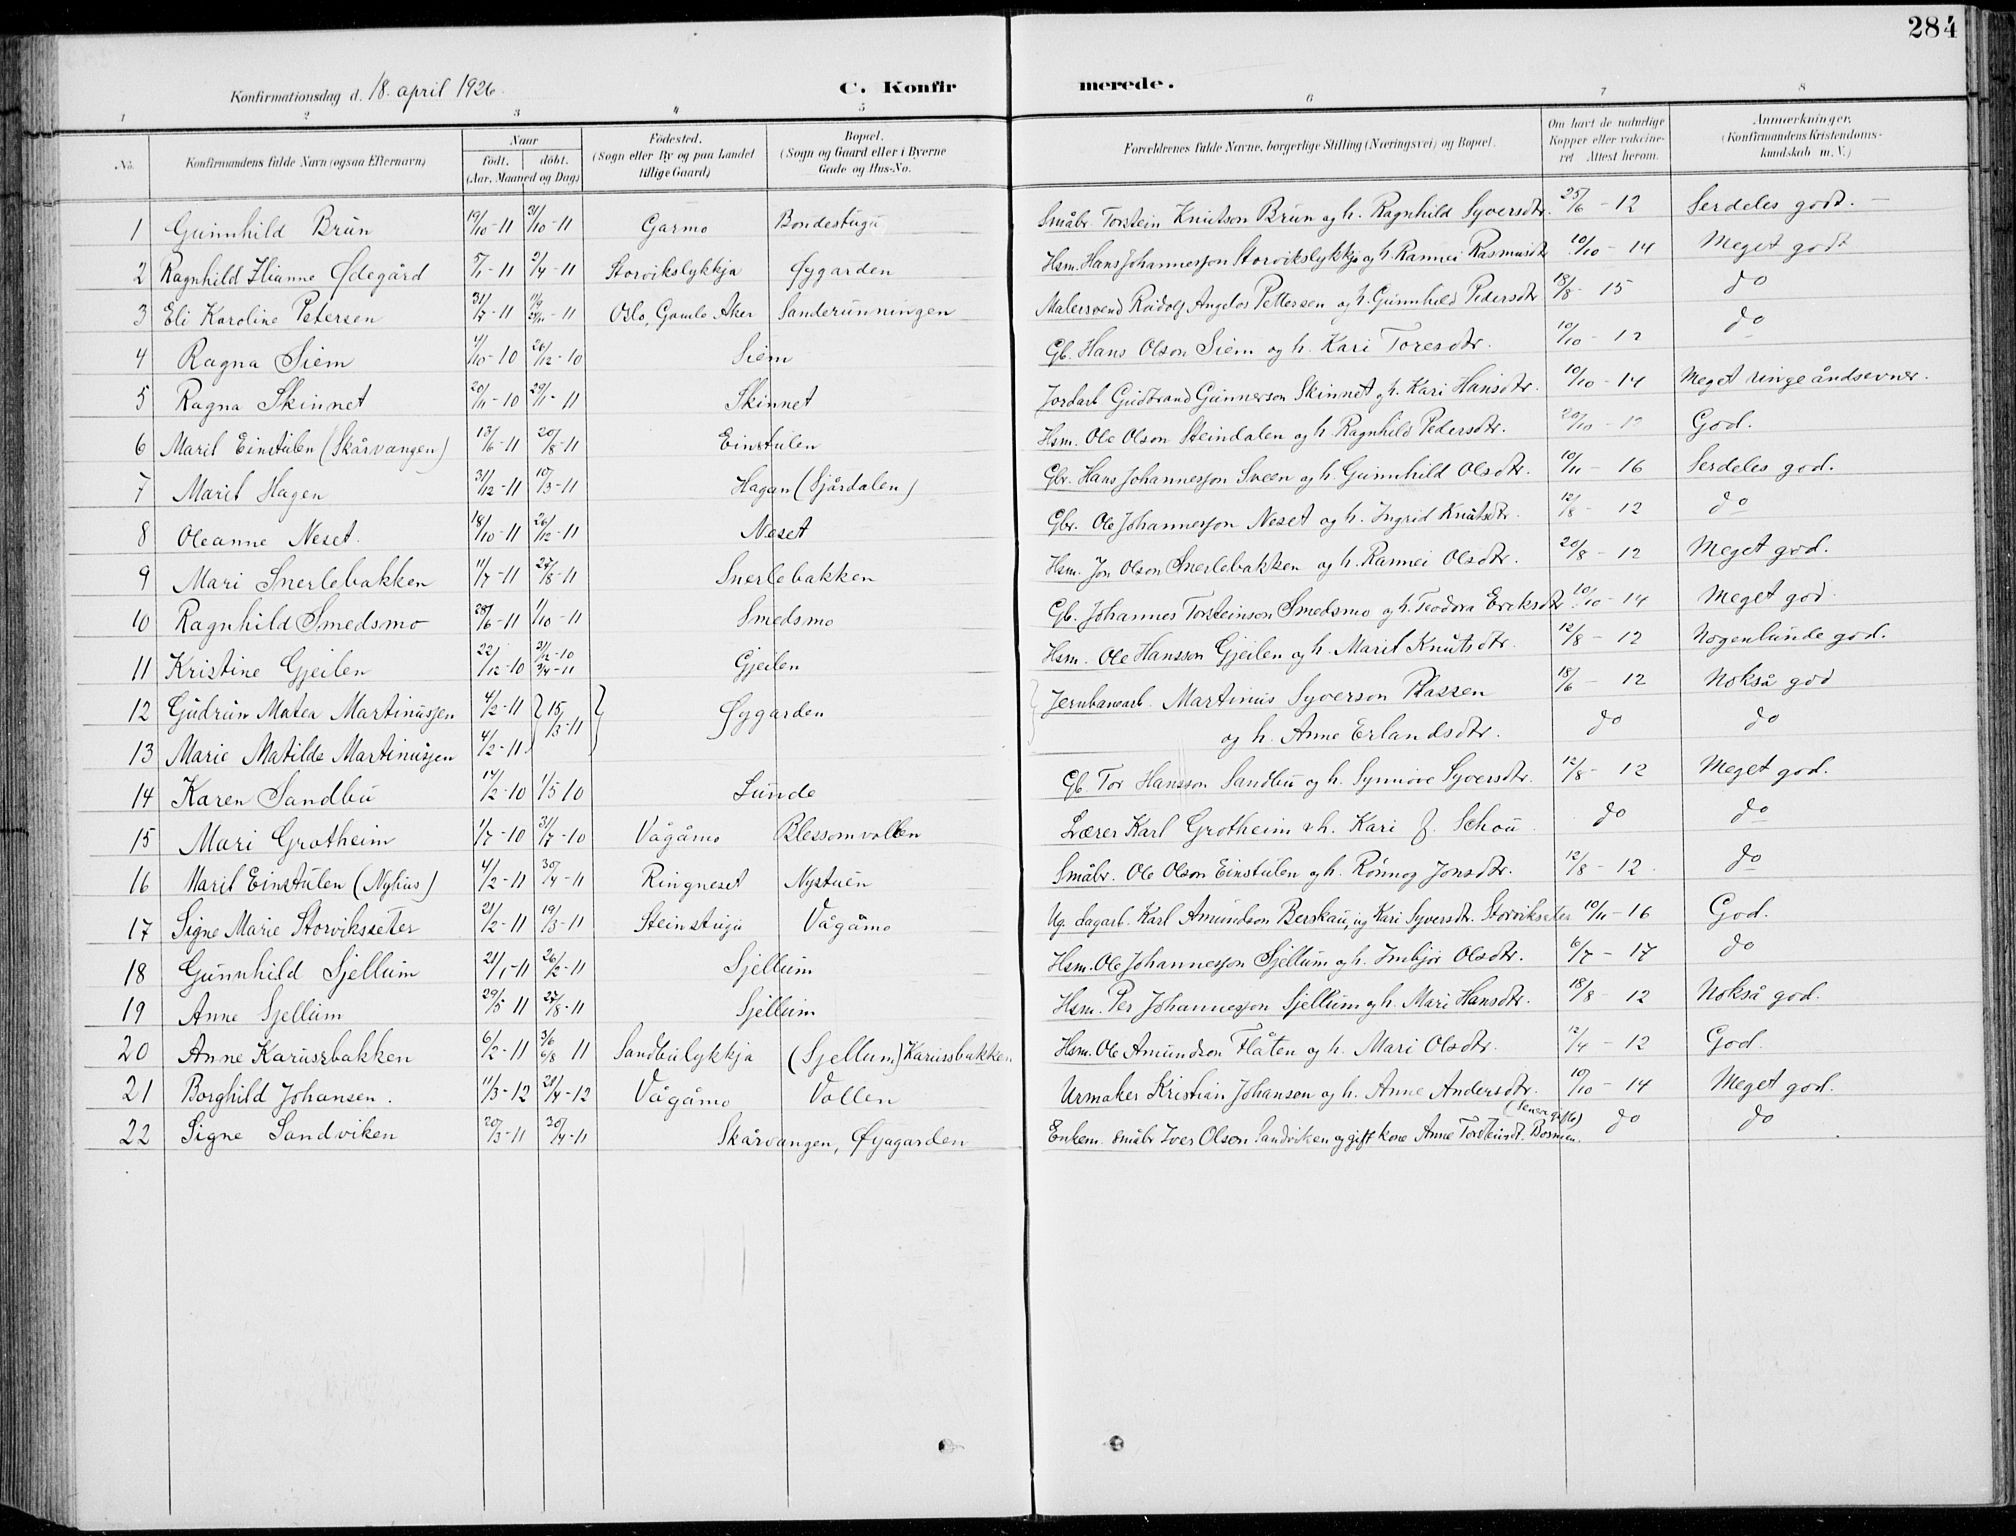 284
Konfirmationsdag d. 18. april 1926.
C. Konfirmerede.
1 2 3 4 5 6 7 8
No. Konfirmandens fulde Navn (ogsaa Efternavn) Naar født. døbt. (Aar, Maaned og Dag) Fødested. (Sogn eller By og paa Landet tillige Gaard) Bopæl. (Sogn og Gaard eller i Byerne Gade og Hus-No. Forældrenes fulde Navne, borgerlige Stilling (Næringsvei) og Bopæl. Om havt de naturlige Kopper eller vakcineret Attest herom. Anmærkninger. (Konfirmandens Kristendomskundskab m. V.)
1 Gunnhild Brun 19/10-11 31/10-11 Garmo Bondestugu Småbr. Torstein Knutson Brun og h. Ragnhild Syversdtr. 25/6-12 Serdeles godt. –
2 Ragnhild Ilianne Ødegård 5/1-11 2/4-11 Storvikslykkja Øygarden Hsm. Hans Johannesson Storvikslykkja og h. Rannei Rasmusdtr 10/10-14 Meget godt
3 Eli Karoline Petersen 31/7-11 -11 Oslo, Gamle Aker Sanderunningen Malersvend Rudolf Angelos Pettersen og h. Gunnhild Pedersdtr 18/8-15 do
4 Ragna Siem 4/10-10 26/12-10 Siem Gb. Hans Olson Siem og h. Kari Toresdtr. 10/10-12 do
5 Ragna Skinnet 20/11-10 29/1-11 Skinnet Jordarb Gudbrand Gunnerson Skinnet og h. Kari Hansdtr. 10/10-14 Meget ringe åndsevner.
6 Marit Einstulen (Skårvangen) 13/6-11 20/8-11 Einstulen Hsm. Ole Olson Steindalen og h. Ragnhild Pedersdtr. 20/10-12 God.
7 Marit Hagen 31/12-11 10/3-11 Hagan (Sjårdalen) Gbr. Hans Johannesson Sveen og h. Gunnhild Olsdtr. 10/11-16 Serdeles god.
8 Oleanne Neset. 18/10-11 26/12-11 Neset Gbr. Ole Johannesson Neset og h. Ingrid Knutsdtr. 12/8-12 do
9 Mari Snerlebakken 11/7-11 27/8-11 Snerlebakken Hsm. Jon Olson Snerlebakken og h. Rannei Olsdtr. 20/8-12 Meget god.
10 Ragnhild Smedsmo 28/6-11 1/10-11 Smedsmo Gb. Johannes Torsteinson Smedsmo og h. Teodora Eriksdtr 10/10-14 Meget god
11 Kristine Gjeilen 22/12-10 31/12-10 2/4-11 Gjeilen Hsm. Ole Hansson Gjeilen og h. Marit Knutsdtr. 12/8-12 Nogenlunde god.
12 Gudrun Matea Martinussen 4/2-11 } 15/3-11 } Øygarden { Jernbanearb. Martinus Syverson Plassen 18/6-12 Nokså god
13 Marie Matilde Martinussen 4/2-11 og h. Anne Erlandsdtr. do do
14 Karen Sandbu 14/2-10 1/5 10 Lunde Gb Tor Hansson Sandbu og h. Synnøve Syversdtr. 12/8-12 Meget god.
15 Mari Grotheim 1/7-10 31/7-10 Vågåmo Blessomvollen Lærer Karl Grotheim & h. Kari f. Schou do do
16 Marit Einstulen (Nyhus) 4/2-11 30/4-11 Ringneset Nystuen Småbr. Ole Olson Einstulen og h. Rønnog Jonsdtr. 12/8-12. do
17 Signe Marie Storviksseter 21/2-11 19/3-11 Steinstugu Vågåmo Ug. dagarb. Karl Amundson Berskau, ug Kari Syversdtr. Storviksseter 10/11-16 God.
18 Gunnhild Sjellum 21/1-11 26/2-11 Sjellum Hsm. Ole Johannesson Sjellum og h. Imbjør Olsdtr. 6/7-17 do
19 Anne Sjellum 29/5 11 27/8-11 Sjellum Hsm. Per Johannesson Sjellum og h. Mari Hansdtr. 18/8-12 Nokså god.
20 Anne Karussbakken 6/2-11 3/6 6/8 11 Sandbulykkja (Sjellum) Karussbakken Hsm. Ole Amundson Flåten og h. Mari Olsdtr. 12/4-12 God.
21 Borghild Johansen. 11/3-12 28/4-12 Vågåmo Vollen Urmaker Kristian Johansen og h. Anne Andersdtr. 10/10-14 Meget god.
22 Signe Sandviken 20/3-11 30/4-11 Skårvangen, Øyagarden Enkem. småbr Iver Olson Sandviken og gift kone Anne (senere gifte) do do